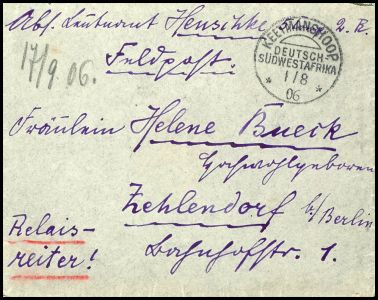 Abs. Leutnant Henschke, 2. R.
Feldpost.
KEETMANSHOOP
DEUTSCH-
SÜDWESTAFRIKA
1/8
06
17/9. 06.
Fräulein Helene Bueck
Hochwohlgeboren
Zehlendorf b/Berlin
Bahnhofstr. 1.
Relais-
reiter!